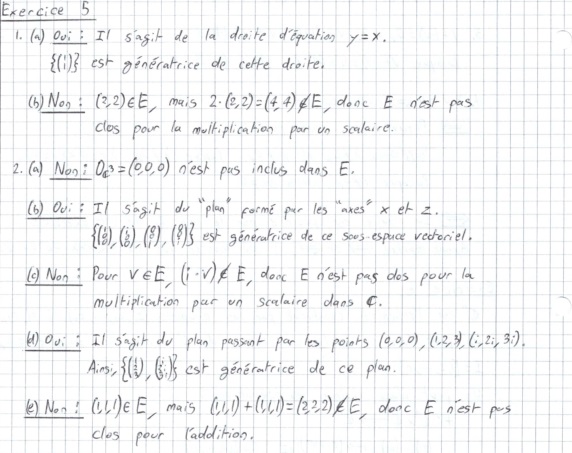 Exercice 5
1. (a) Oui : Il s'agit de la droite d'équation y=x.
{(1 1)} est génératrice de cette droite.
(b) Non : (2,2)∈E, mais 2·(2,2)=(4,4)∉E, donc E n'est pas
clos pour la multiplication par un scalaire.
2. (a) Non : 0_ℂ³=(0,0,0) n'est pas inclus dans E.
(b) Oui : Il s'agit du "plan" formé par les "axes" x et z.
est génératrice de ce sous-espace vectoriel.
(c) Non : Pour v∈E, (i·v)∉E, donc E n'est pas clos pour la
multiplication par un scalaire dans ℂ.
(d) Oui : Il s'agit du plan passant par les points (0,0,0), (1,2,3), (i,2i,3i).
Ainsi, {(1 2 3), (i 2i 3i)} est génératrice de ce plan.
(e) Non : (1,1,1)∈E, mais (1,1,1)+(1,1,1)=(2,2,2)∉E, donc E n'est pas
clos pour l'addition.